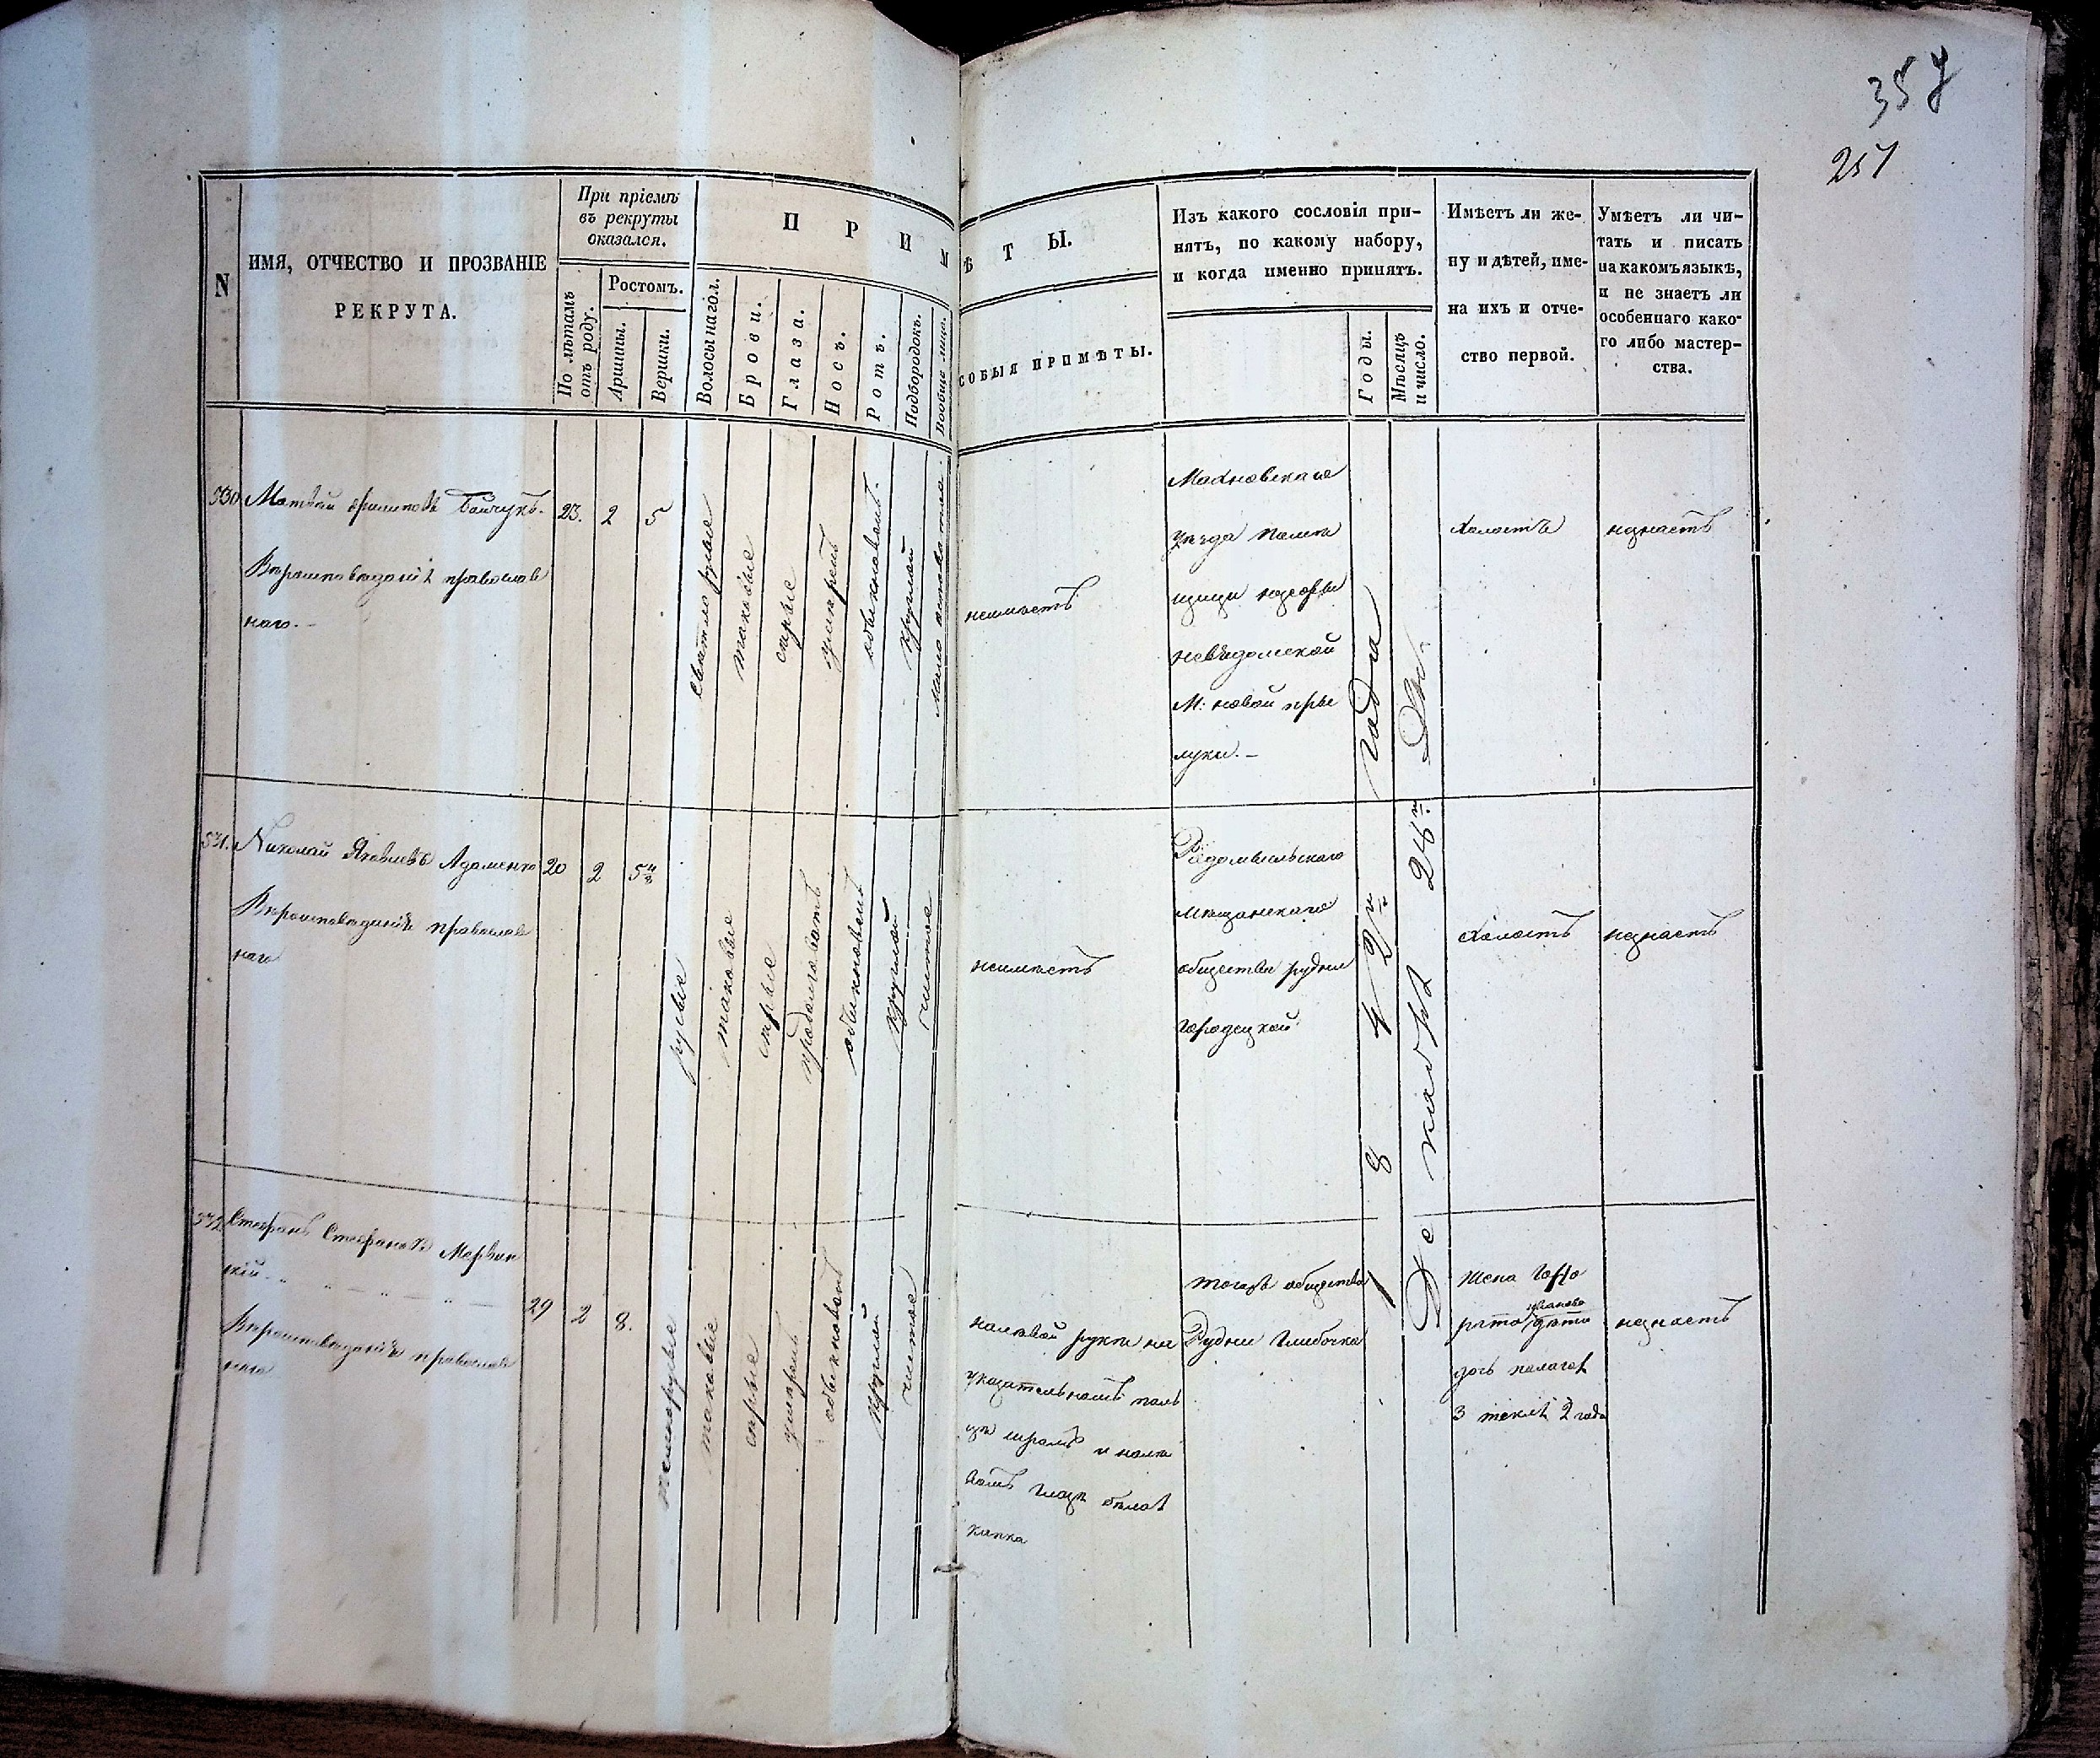 357
257
N
ИМЯ, ОТЧЕСТВО И ПРОЗВАНІЕ
РЕКРУТА.
При пріемѣ
въ рекруты
оказался.
По лѣтамъ
отъ роду.
Ростомъ.
Аршины.
Вершки.
П Р И М
Волосы на гол.
Брови.
Глаза.
Носъ.
Ротъ.
Подбородокъ.
Вообще лице.
Ѣ Т Ы.
СОБЫЯ ПРИМѢТЫ.
Изъ какого сословія при-
нятъ, по какому набору,
и когда именно принятъ.
Годы.
Мѣсяцъ
и число.
Имѣетъ ли же-
ну и дѣтей, име-
на ихъ и отче-
ство первой.
Умѣетъ ли чи-
тать и писать
на какомъ языкѣ,
и не знаетъ ли
особеннаго како-
го либо мастер-
ства.
530
Матвѣй Филиповъ
Вѣроисповѣданія православ
наго.
23.
2
5
свѣтлорусые
таковые
сѣрые
обыкновен.
круглый
неимѣетъ
Махновскаго
уѣзда
М: новой при
луки.
холостъ
незнаетъ
531.
Николай Яковлевъ Адаменко
Вѣроисповѣданія православ
наго
20
2
5
русые
таковые
сѣрые
продолговатъ
обыкновенъ
круглый
чистое
неимѣетъ
Радомысльскаго
мѣщанскаго
общества рудни
городецкой
холостъ
незнаетъ
532
Стефанъ Стефановъ
кій
Вѣроисповѣданія православ
наго
29
2
8.
темнорусые
таковые
сѣрые
умѣренъ
обыкновенъ
круглый
чистое
налѣвой руки на
указательномъ паль
цѣ шрамъ и налѣ
вомъ глазѣ бѣлая
Рудни
Жена
иванова
дѣти
дочь палагея
3 текля 2 года
незнаетъ
Декабря 28 дня.
года